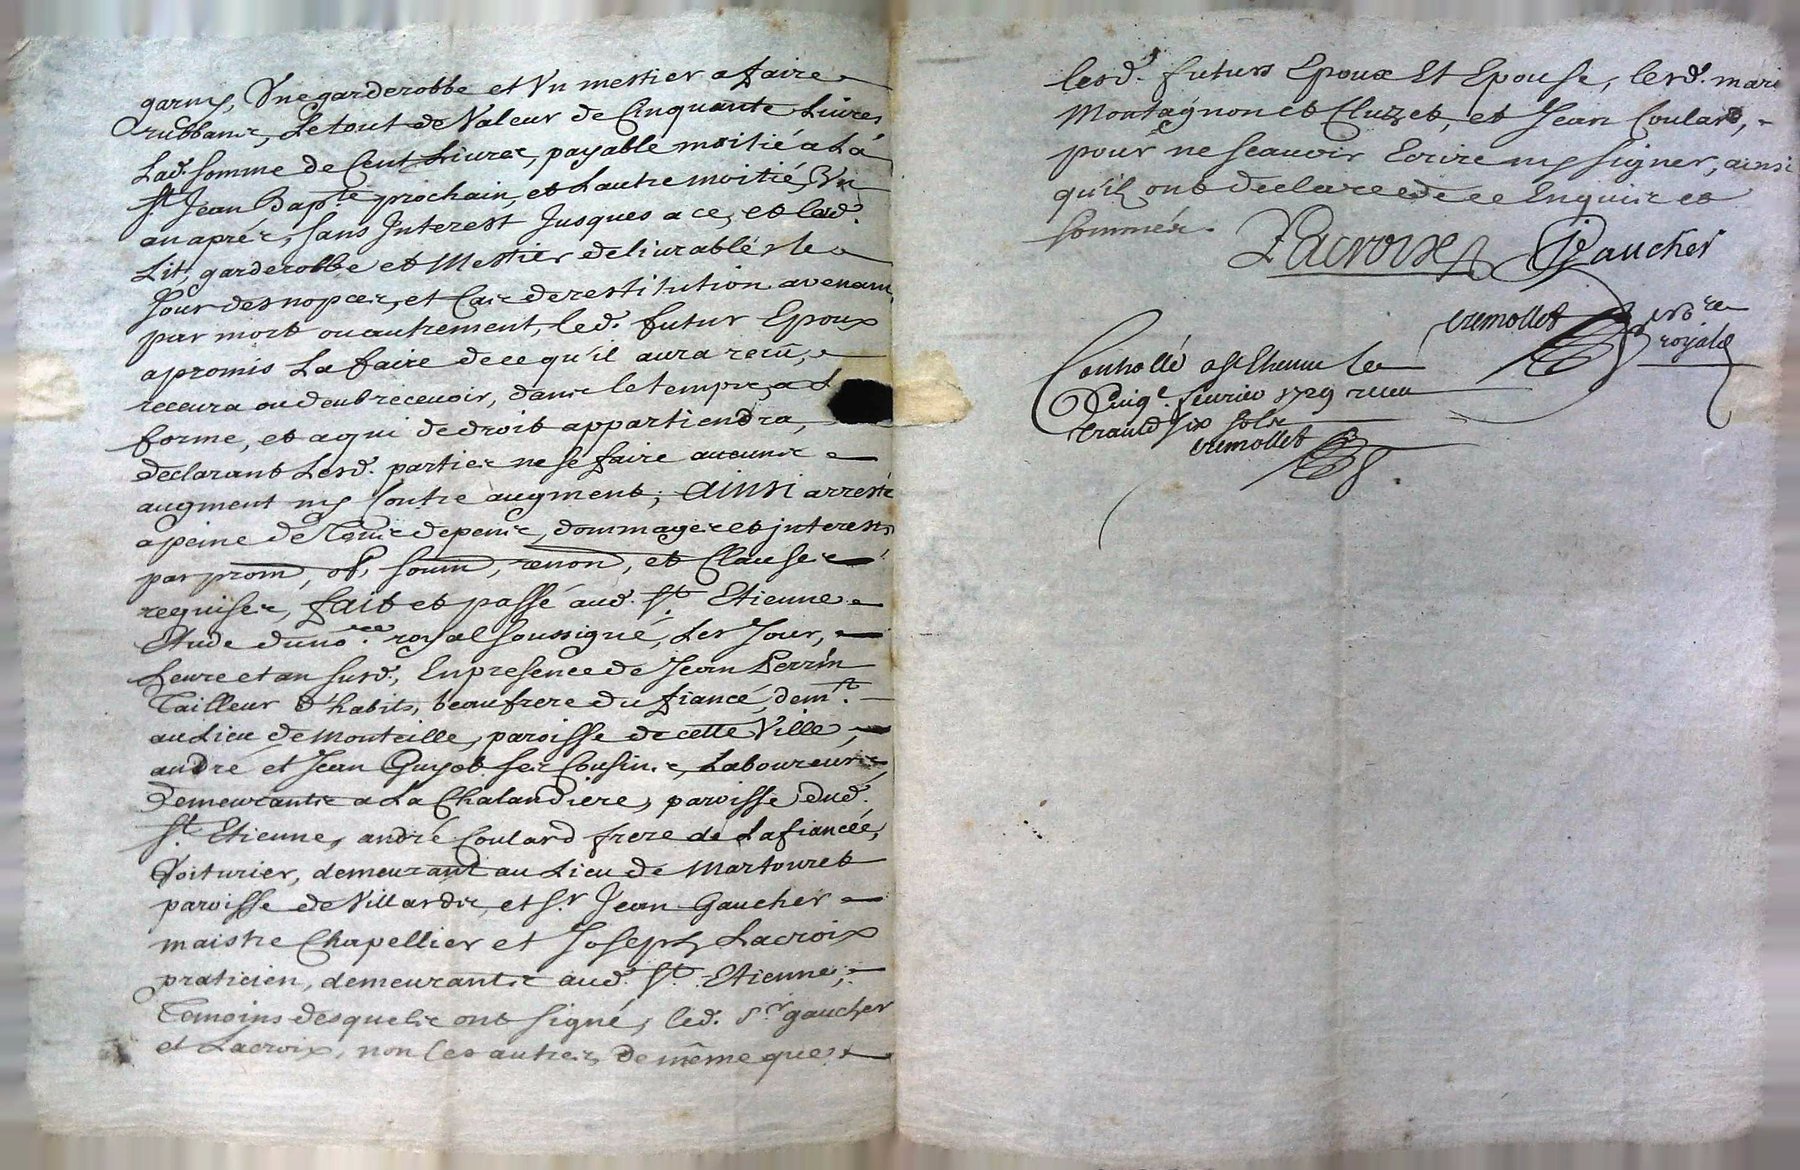 garny, Une garderobbe et Un mestier a faire
rubbans, Le tout de Valeur de Cinquante Livres
Lad. somme de Cent Livres, payable moitié a La
St Jean Bapte prochain, et L'autre moitié Un
an aprés, sans Interest Jusques a ce, et led.
Lit, garderobbe et Mestier delivrables le
Jour des nopces, et Cas de restitution avenant
par mort ou autrement, led. futur Epoux
a promis La faire de ce qu'il aura recû,
recevra ou deub recevoir, dans le temps, a L
forme, et a qui de droit appartiendra,
declarant Lesd. parties ne se faire aucuns
augment ny Contre augment, ainsi arresté
a peine de tous depens, dommages et jnterests
par prom, ob, soum, renon, et Clauses
requises, fait et passé aud. St Etienne
Etude du nore royal soussigné, Les Jour,
heure et an susd., En presence de Jean Perrin
Tailleur d'habits, beaufrere du fiancé, demt.
au Lieu de Monteille, paroisse de cette Ville,
andré et Jean Guyot ses Cousins, Laboureurs,
Demeurants a La Chalandiere, paroisse dud.
St. Etienne, andré Coulard frere de La fiancée,
Voiturier, demeurant au Lieu de Martouret
paroisse de Villards, et Sr Jean Gaucher
maistre Chapellier et Joseph Lacroix
praticien, demeurants aud. St. Etienne,
Temoins desquels ont signé, led. Sr gaucher
et Lacroix, non les autres, de même que
lesd. futurs Epoux Et Epouse, lesd. marie
Montagnon et Cluzet, et Jean Coulard,
pour ne scauoir Ecrire ny signer, ainsi
qu'ils ont declare de ce Enquis et
sommés.
Lacroix JGaucher
tremollet nore
royal
Controllé a St Etienne le
Vingt. février 1729 receu
tremollet